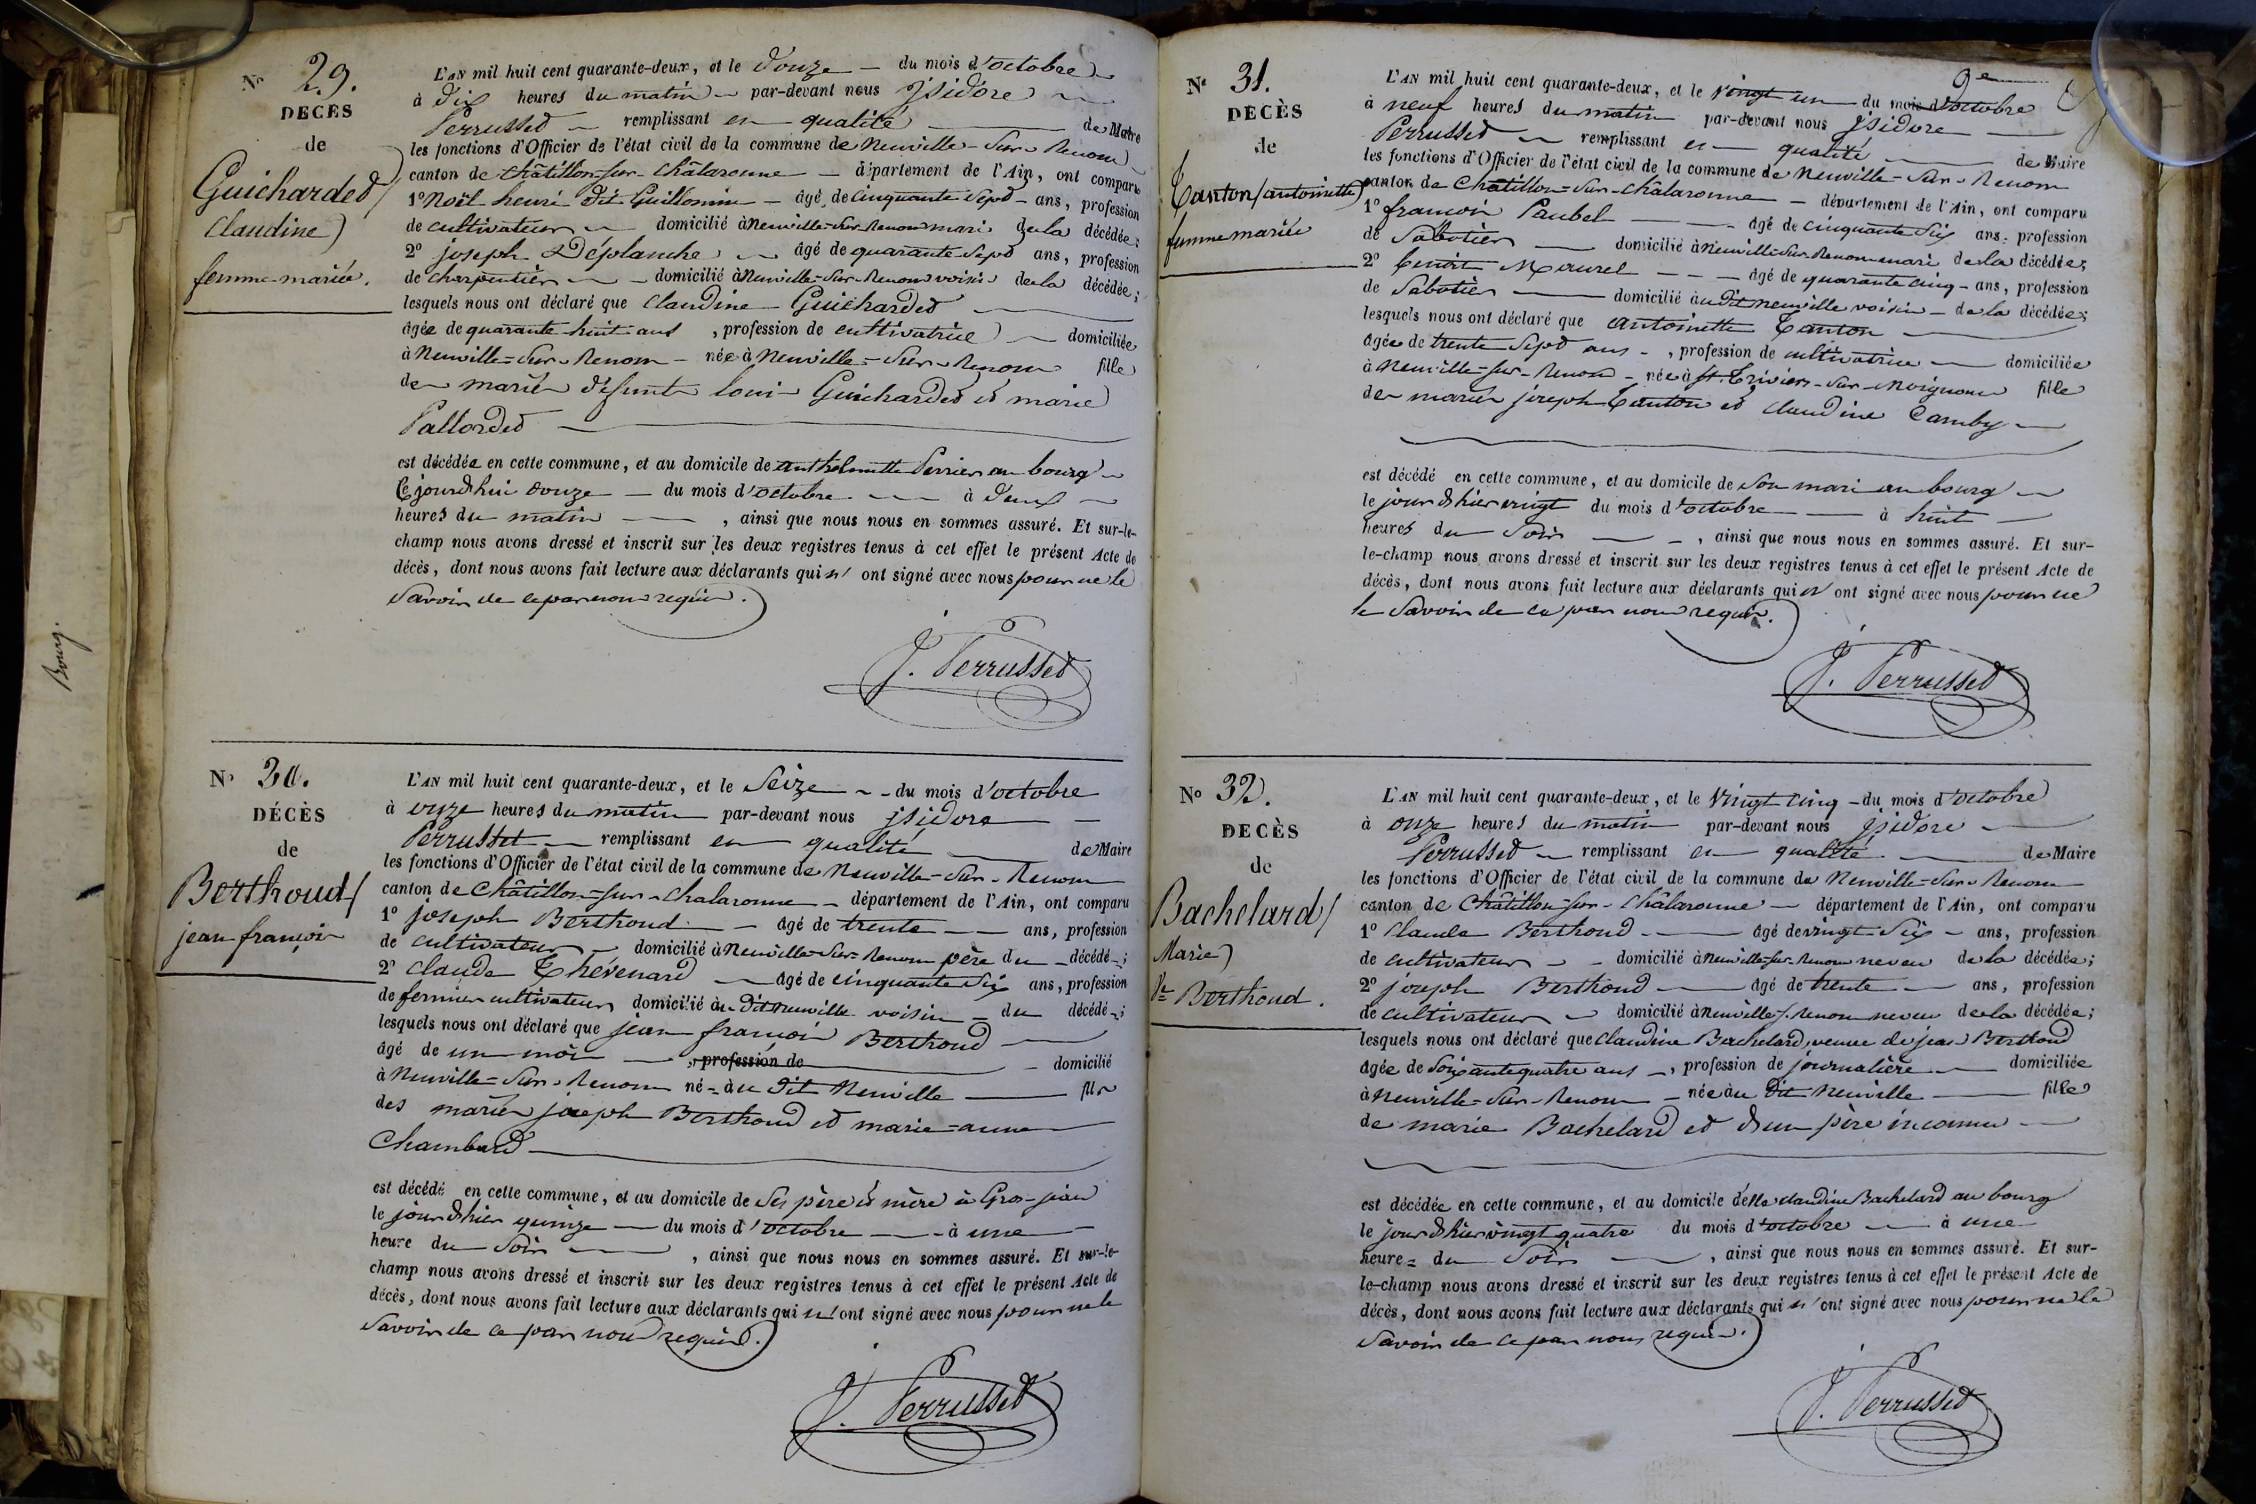 Bourg.
N° 29.
DÉCÈS
de
Guicharded
Claudine)
femme mariée.
L'AN mil huit cent quarante-deux, et le douze du mois d'octobre
à dix heures du matin par-devant nous jsidore
Perrussed remplissant en qualité de Maire
les fonctions d'Officier de l'état civil de la commune de Neuville-sur-Renom
canton de Châtillon-sur-Châlaronne département de l'Ain, ont comparu
1° Noël henri dit Guillomin âgé de cinquante sept ans, profession
de cultivateur domicilié à Neuville-sur-Renom mari de la décédée;
2° joseph Déplanche âgé de quarante sept ans, profession
de charpentier domicilié à Neuville-sur-Renom voisin de la décédée;
lesquels nous ont déclaré que Claudine Guicharded
âgée de quarante huit ans, profession de cultivatrice domiciliée
à Neuville-sur-Renom née à Neuville-sur-Renom fille
de mariés défunts loui Guicharded et marie
Pallorded
est décédée en cette commune, et au domicile de anthelmette Perrier au bourg
le jourdhui douze du mois d'octobre à deux
heures du matin, ainsi que nous nous en sommes assuré. Et sur-le-
champ nous avons dressé et inscrit sur les deux registres tenus à cet effet le présent Acte de
décès, dont nous avons fait lecture aux déclarants qui n'ont signé avec nous pour ne le
savoir de ce par nous requis.
J. Perrussed
N° 30.
DÉCÈS
de
Berthoud
jean françois
L'AN mil huit cent quarante-deux, et le seize du mois d'octobre
à onze heures du matin par-devant nous jsidore
Perrusset remplissant en qualité de Maire
les fonctions d'Officier de l'état civil de la commune de Neuville-sur-Renom
canton de Châtillon-sur-Chalaronne département de l'Ain, ont comparu
1° joseph Berthoud âgé de trente ans, profession
de cultivateur domicilié à Neuville-sur-Renom père du décédé;
2° claude Thévenard âgé de cinquante six ans, profession
de fermier cultivateur domicilié au dit neuville voisin du décédé;
lesquels nous ont déclaré que jean françois Berthoud
âgé de un mois, profession de domicilié
à Neuville-sur-Renom né au dit Neuville fils
des mariés joseph Berthoud et marie-anne
Chambard
est décédé en cette commune, et au domicile de ses père et mère à Gros-jean
le jour d'hier quinze du mois d'octobre à une
heure du soir, ainsi que nous nous en sommes assuré. Et sur-le-
champ nous avons dressé et inscrit sur les deux registres tenus à cet effet le présent Acte de
décès, dont nous avons fait lecture aux déclarants qui n'ont signé avec nous pour ne le
savoir de ce par nous requis.
J. Perrussed
N° 31.
DÉCÈS
de
Tanton (antoinette)
femme mariée
9e
L'AN mil huit cent quarante-deux, et le vingt un du mois d'octobre
à neuf heures du matin par-devant nous jsidore
Perrussed remplissant en qualité de Maire
les fonctions d'Officier de l'état civil de la commune de Neuville-sur-Renom
canton de Châtillon-sur-châlaronne département de l'Ain, ont comparu
1° françois Paubel âgé de cinquante six ans, profession
de Sabotier domicilié à Neuville-sur-Renom mari de la décédée;
2° benoit Mourel âgé de quarante cinq ans, profession
de Sabotier domicilié au dit neuville voisin de la décédée;
lesquels nous ont déclaré que antoinette Tanton
âgée de trente sept ans, profession de cultivatrice domiciliée
à Neuville-sur-Renom née à St Triviers-sur-Moignans fille
de mariés joseph Tanton et claudine Camby
est décédé en cette commune, et au domicile de son mari au bourg
le jour d'hier vingt du mois d'octobre à huit
heures du soir, ainsi que nous nous en sommes assuré. Et sur-
le-champ nous avons dressé et inscrit sur les deux registres tenus à cet effet le présent Acte de
décès, dont nous avons fait lecture aux déclarants qui n'ont signé avec nous pour ne
le savoir de ce par nous requis.
J. Perrussed
N° 32.
DÉCÈS
de
Bachelard
Marie)
Ve Berthoud.
L'AN mil huit cent quarante-deux, et le Vingt cinq du mois d'octobre
à onze heures du matin par-devant nous jsidore
Perrussed remplissant en qualité de Maire
les fonctions d'Officier de l'état civil de la commune de Neuville-sur-Renom
canton de Châtillon-sur-Châlaronne département de l'Ain, ont comparu
1° Claude Berthoud âgé de vingt six ans, profession
de cultivateur domicilié à Neuville-sur-Renom neveu de la décédée;
2° joseph Berthoud âgé de trente ans, profession
de cultivateur domicilié à Neuville s. Renom neveu de la décédée;
lesquels nous ont déclaré que Claudine Bachelard, veuve de jean Berthoud
âgée de soixante quatre ans, profession de journalière domiciliée
à Neuville-sur-Renom née au dit Neuville fille
de marie Bachelard et d'un père inconnu
est décédée en cette commune, et au domicile d'elle claudine Bachelard au bourg
le jour d'hier vingt quatre du mois d'octobre à une
heure du soir, ainsi que nous nous en sommes assuré. Et sur-
le-champ nous avons dressé et inscrit sur les deux registres tenus à cet effet le présent Acte de
décès, dont nous avons fait lecture aux déclarants qui n'ont signé avec nous pour ne le
savoir de ce par nous requis.
J. Perrussed